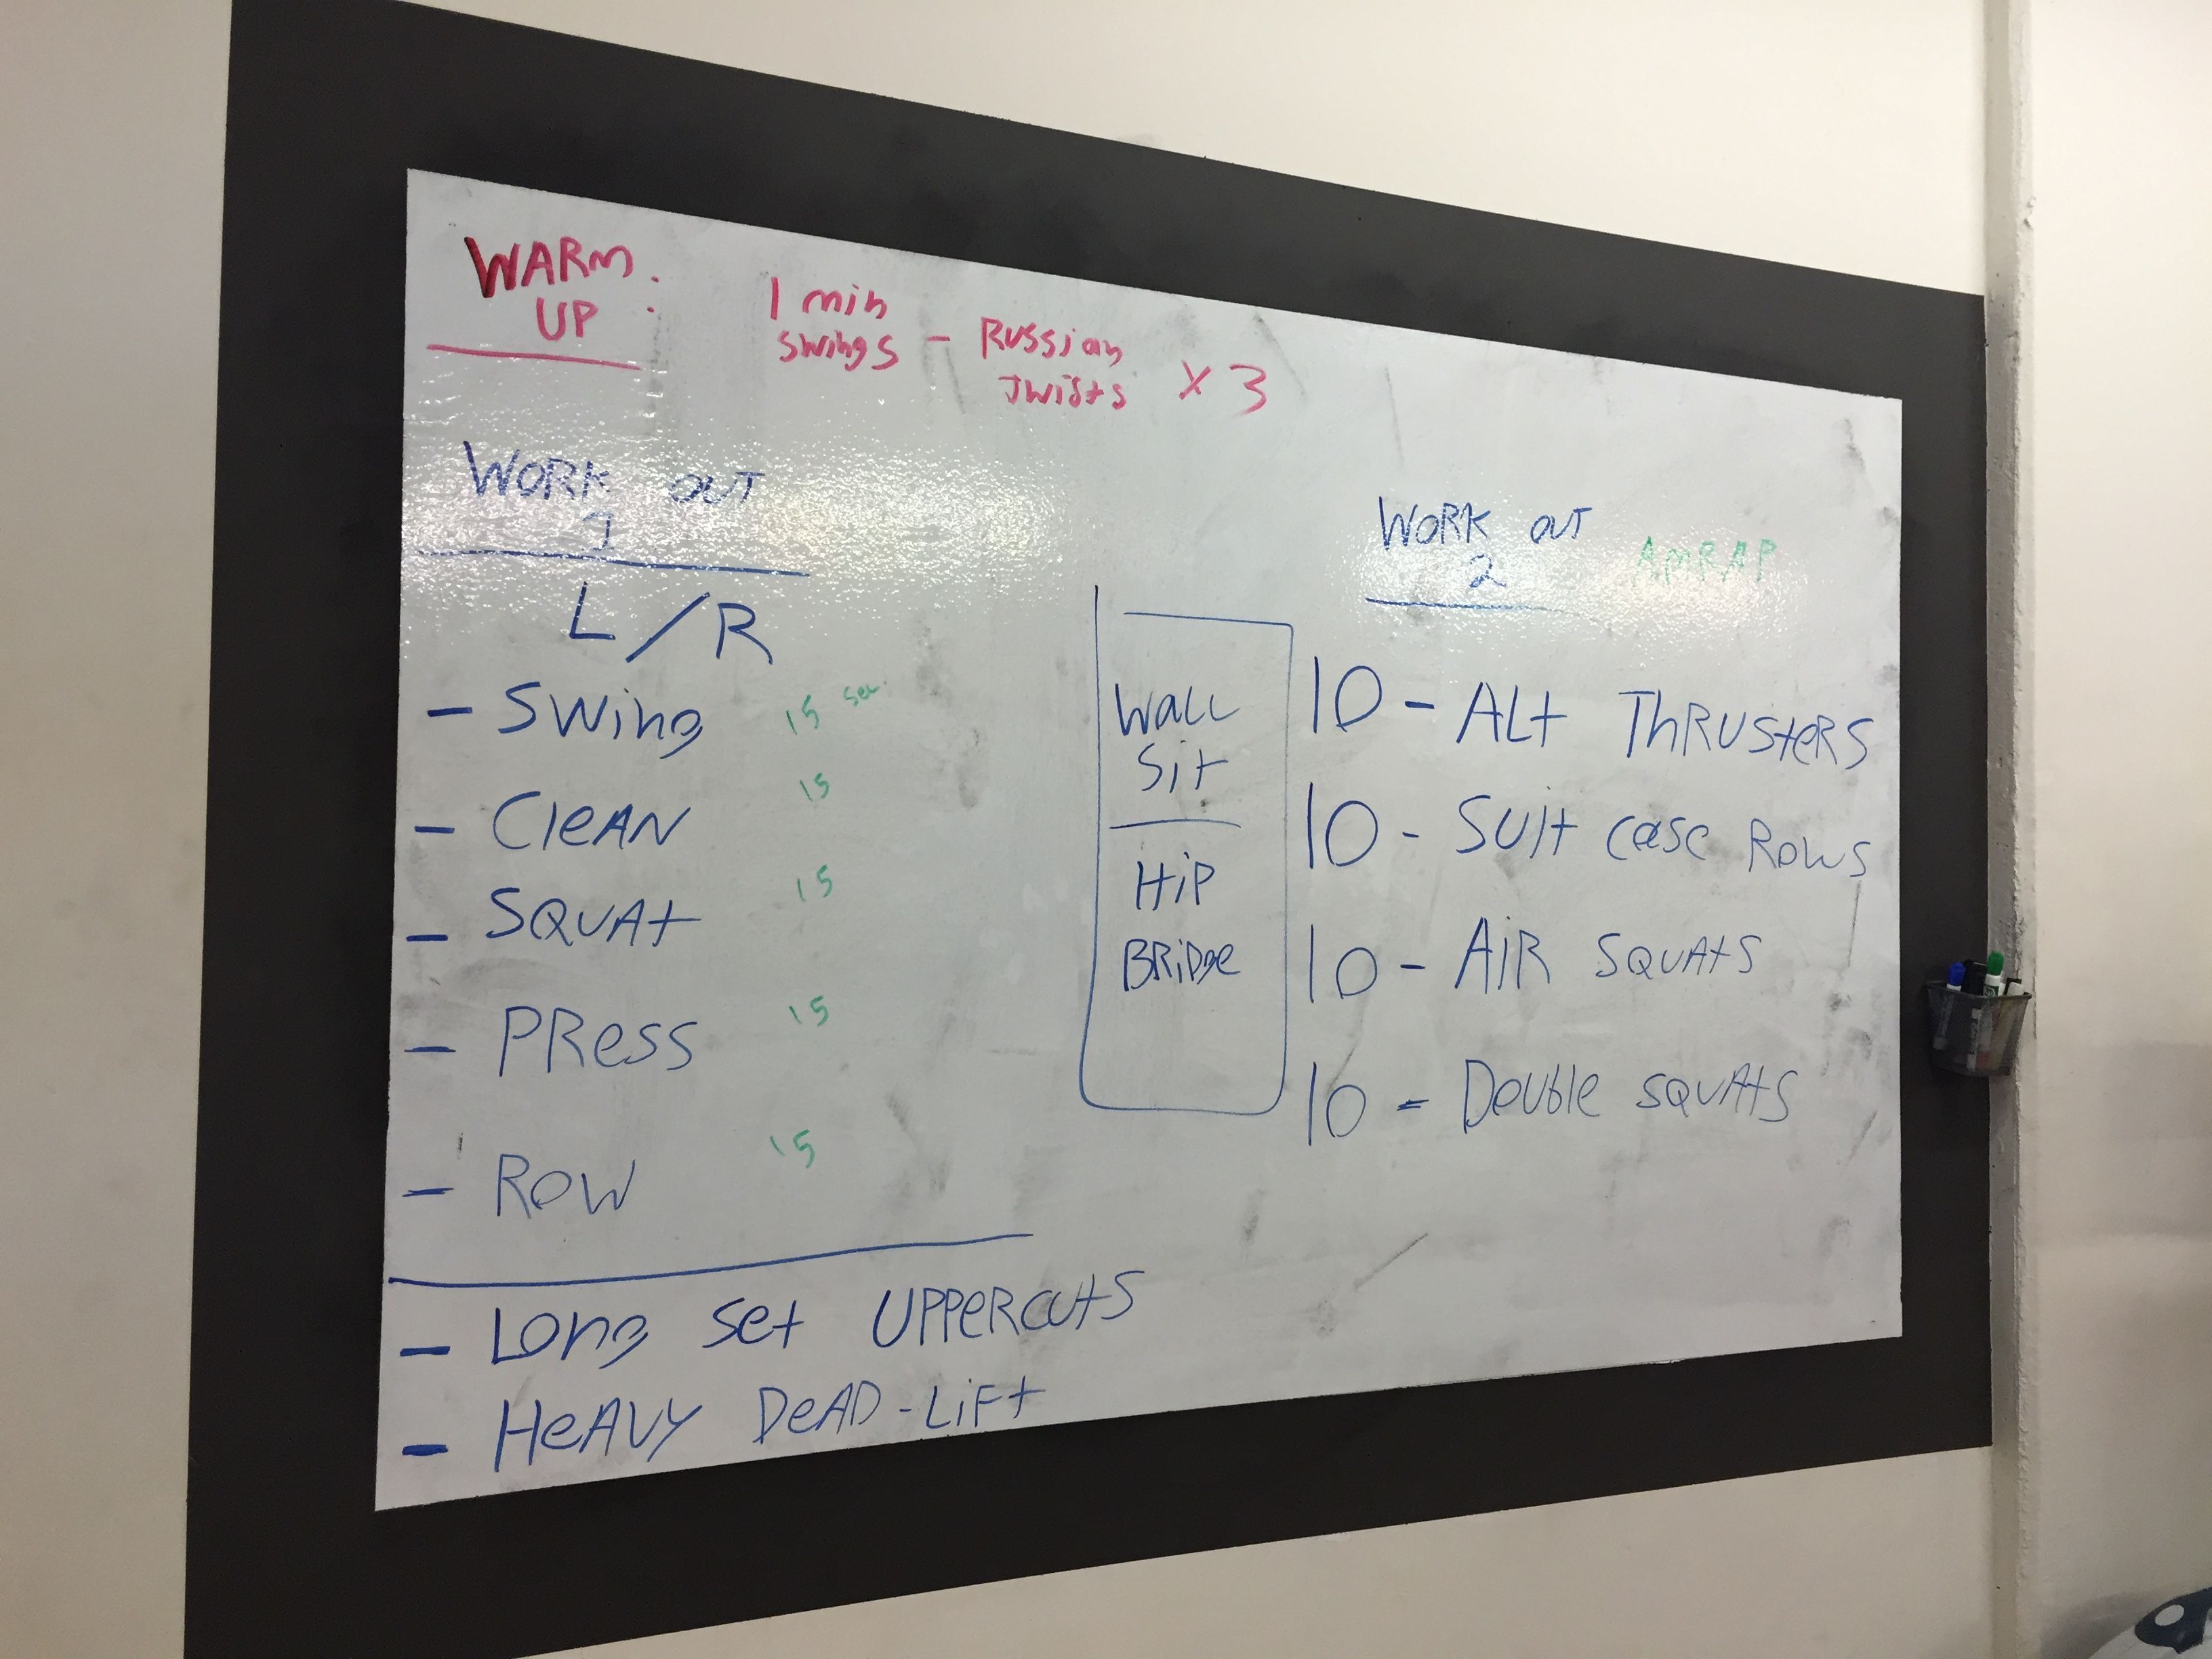 WARM :
UP
1 min
swings - Russian
Twists x 3
WORK OUT
1
L/R
- Swing 15 sec.
- Clean 15
- Squat 15
- Press 15
- Row 15
- Long set uppercuts
- Heavy Dead-Lift
Wall
Sit
Hip
Bridge
WORK OUT
2 AMRAP
10 - Alt Thrusters
10 - Suit case Rows
10 - Air squats
10 - Double squats